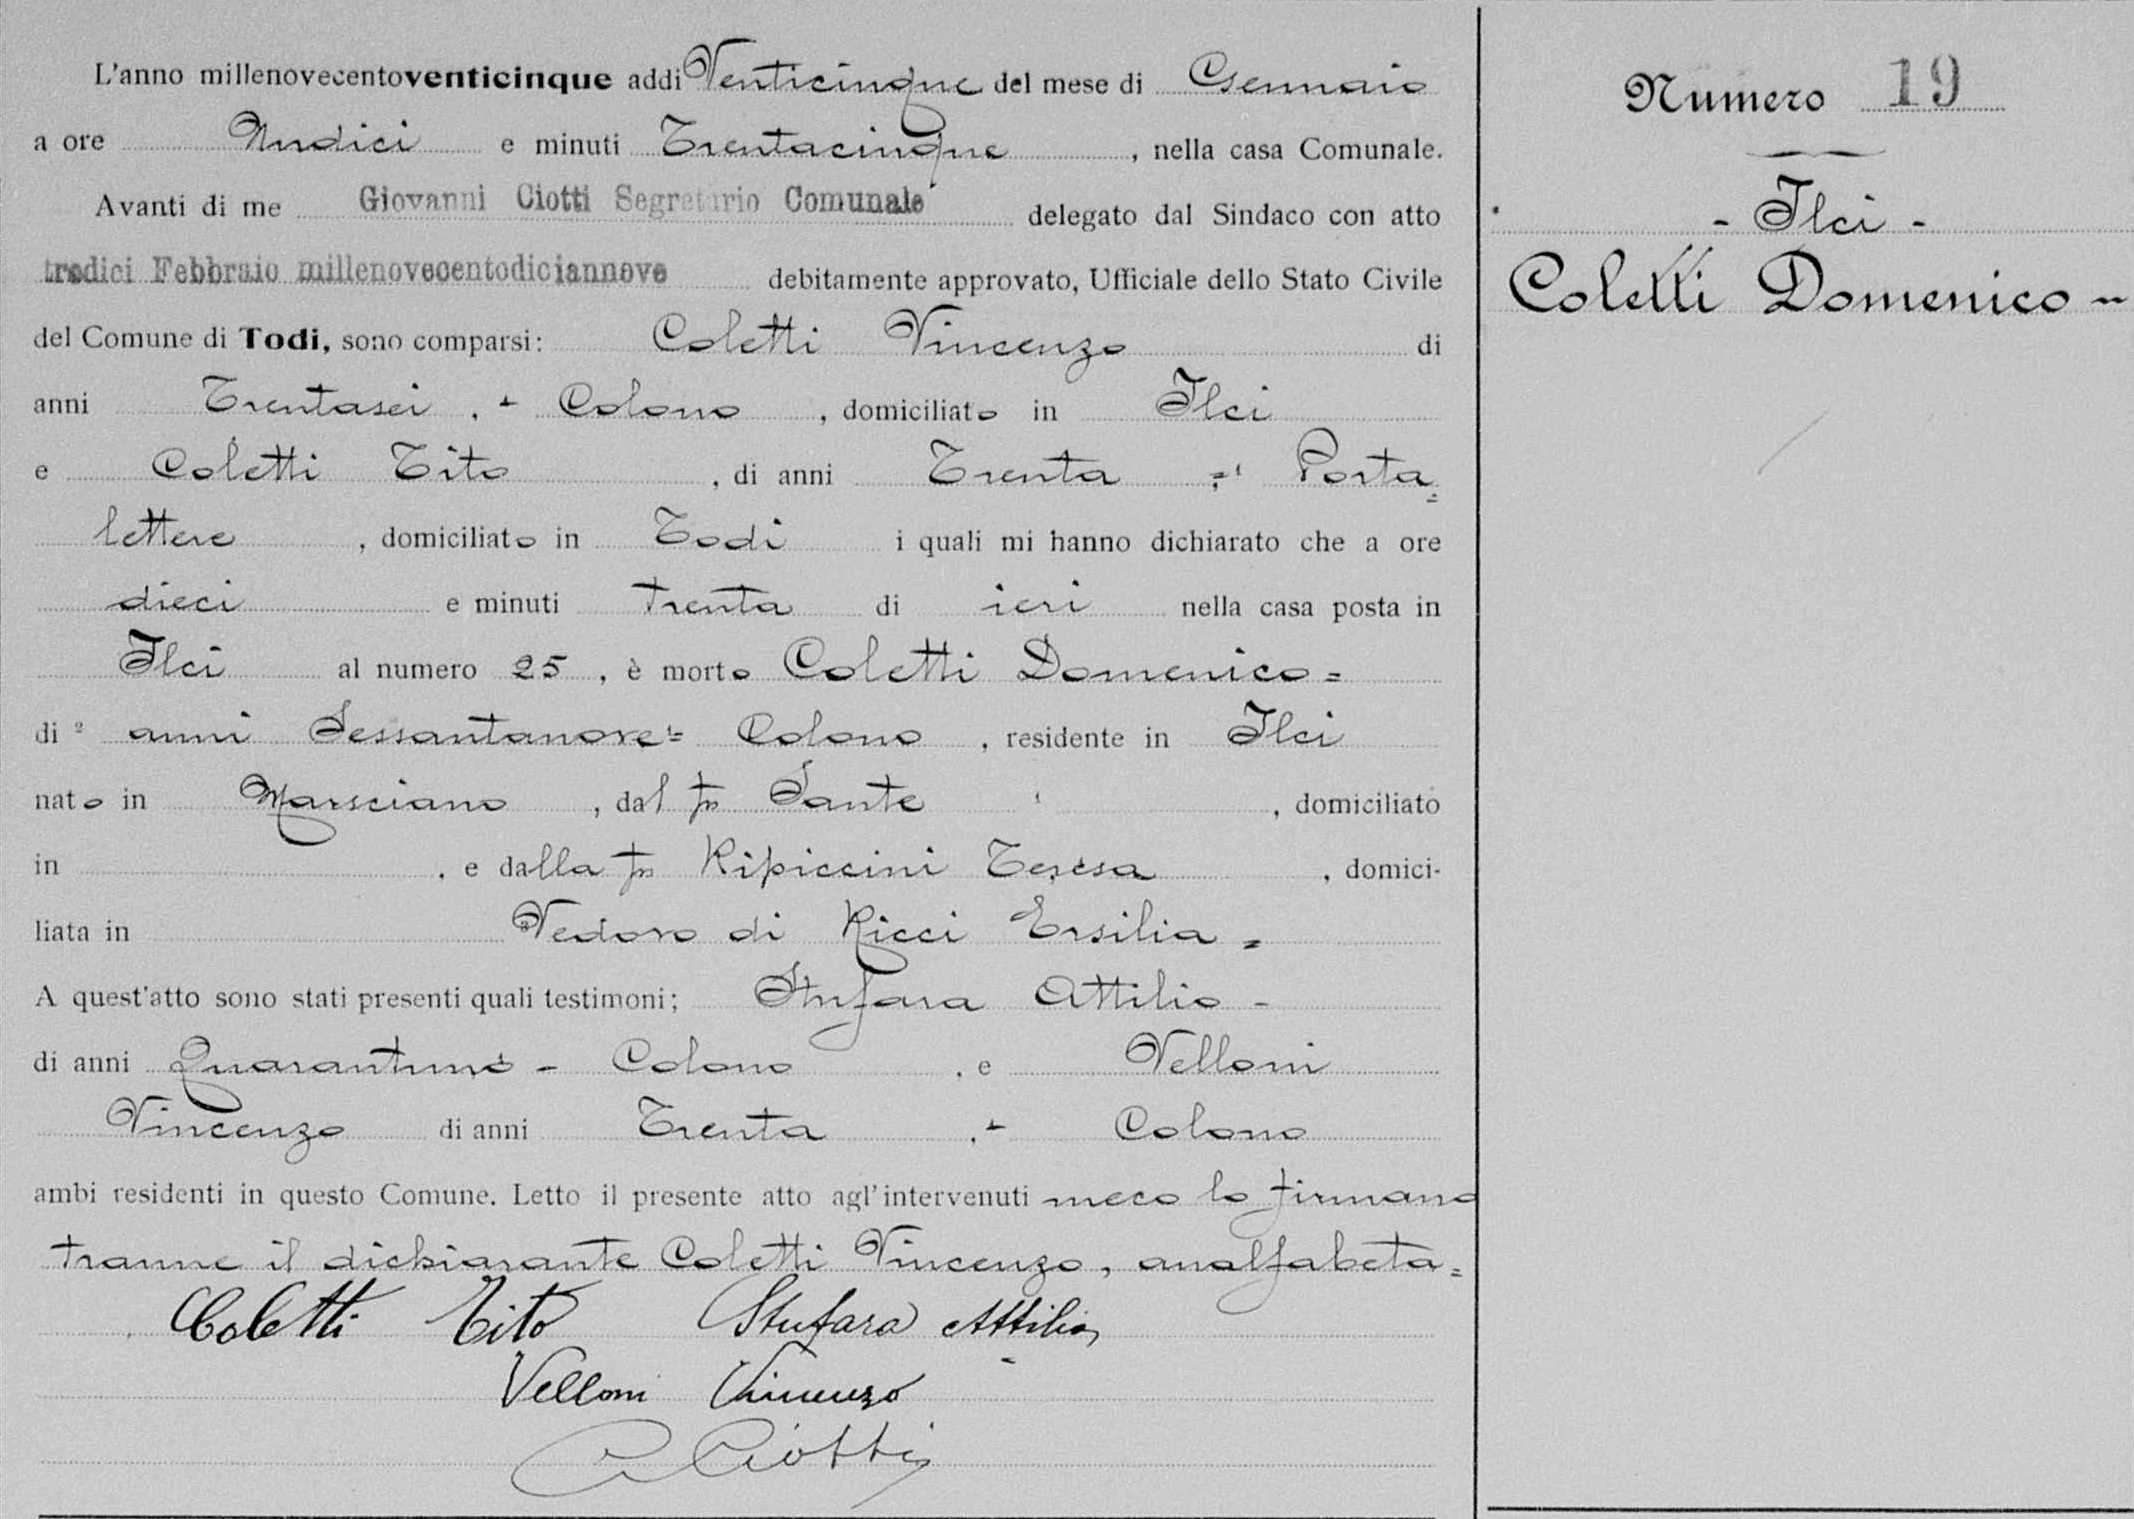 L'anno millenovecentoventicinque addi Venticinque del mese di Gennaio
a ore Undici e minuti Trentacinque, nella casa Comunale.
Avanti di me Giovanni Ciotti Segretario Comunale delegato dal Sindaco con atto
tredici Febbraio millenovecentodiciannove debitamente approvato, Ufficiale dello Stato Civile
del Comune di Todi, sono comparsi: Coletti Vincenzo di
anni Trentasei, - Colono, domiciliato in Ilci
e Coletti Tito, di anni Trenta, Porta=
lettere, domiciliato in Todi i quali mi hanno dichiarato che a ore
dieci e minuti trenta di ieri nella casa posta in
Ilci al numero 25, è morto Coletti Domenico =
di anni Sessantanove = Colono, residente in Ilci
nato in Marsciano, dal fu Sante, domiciliato
in , e dalla fu Ripiccini Teresa, domici-
liata in Vedovo di Ricci Ersilia =
A quest'atto sono stati presenti quali testimoni; Stufara Attilio -
di anni Quarantuno - Colono, e Velloni
Vincenzo di anni Trenta, - Colono
ambi residenti in questo Comune. Letto il presente atto agl'intervenuti meco lo firmano
tranne il dichiarante Coletti Vincenzo, analfabeta =
Coletti Tito Stufara Attilio
Velloni Vincenzo
Ciotti
Numero 19
- Ilci -
Coletti Domenico -